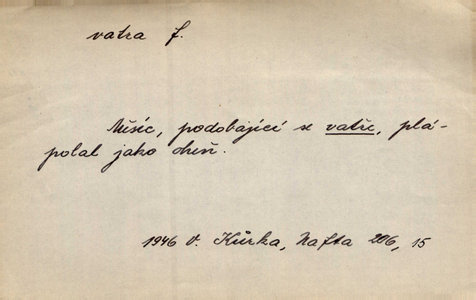 vatra f.
Měsíc, podobající se vatře, plá-
polal jako oheň.
1946 V. Kůrka, Nafta 206, 15